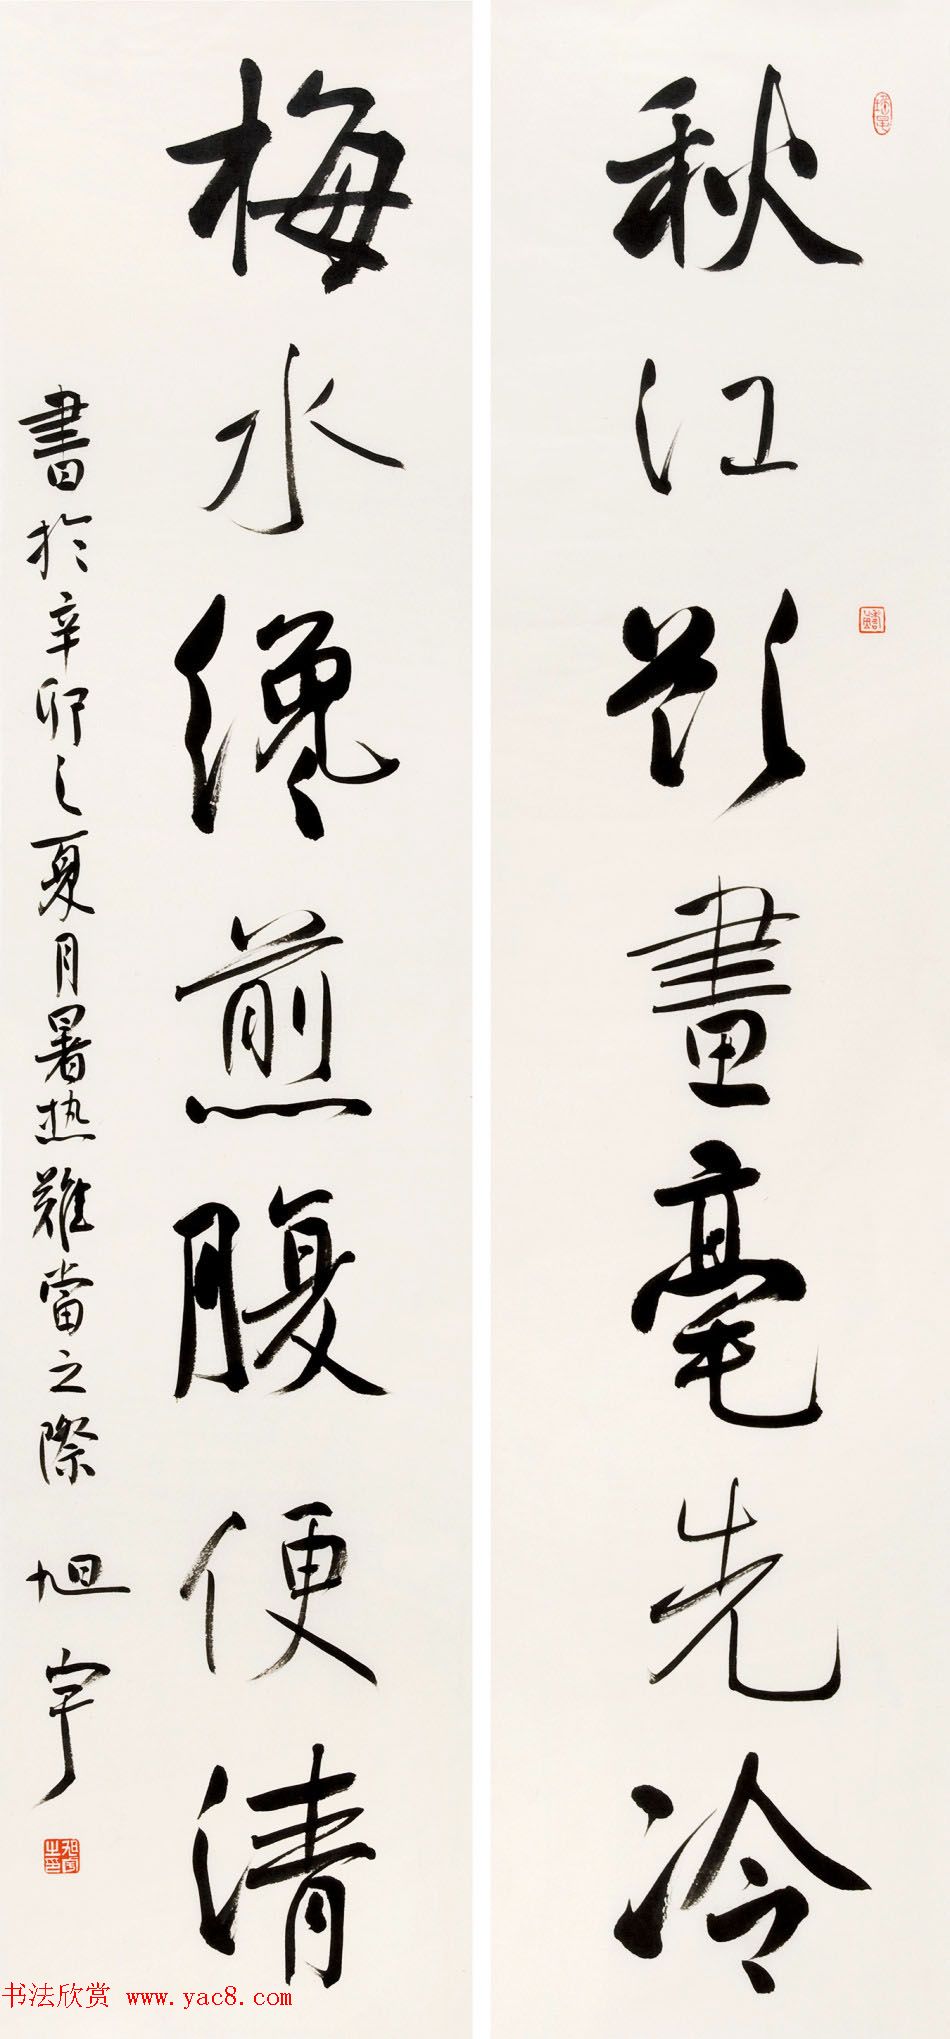 秋江欲畫毫先冷
梅水纔煎腹便清
書於辛卯之夏月暑热難當之際 旭宇
书法欣赏 www.yac8.com